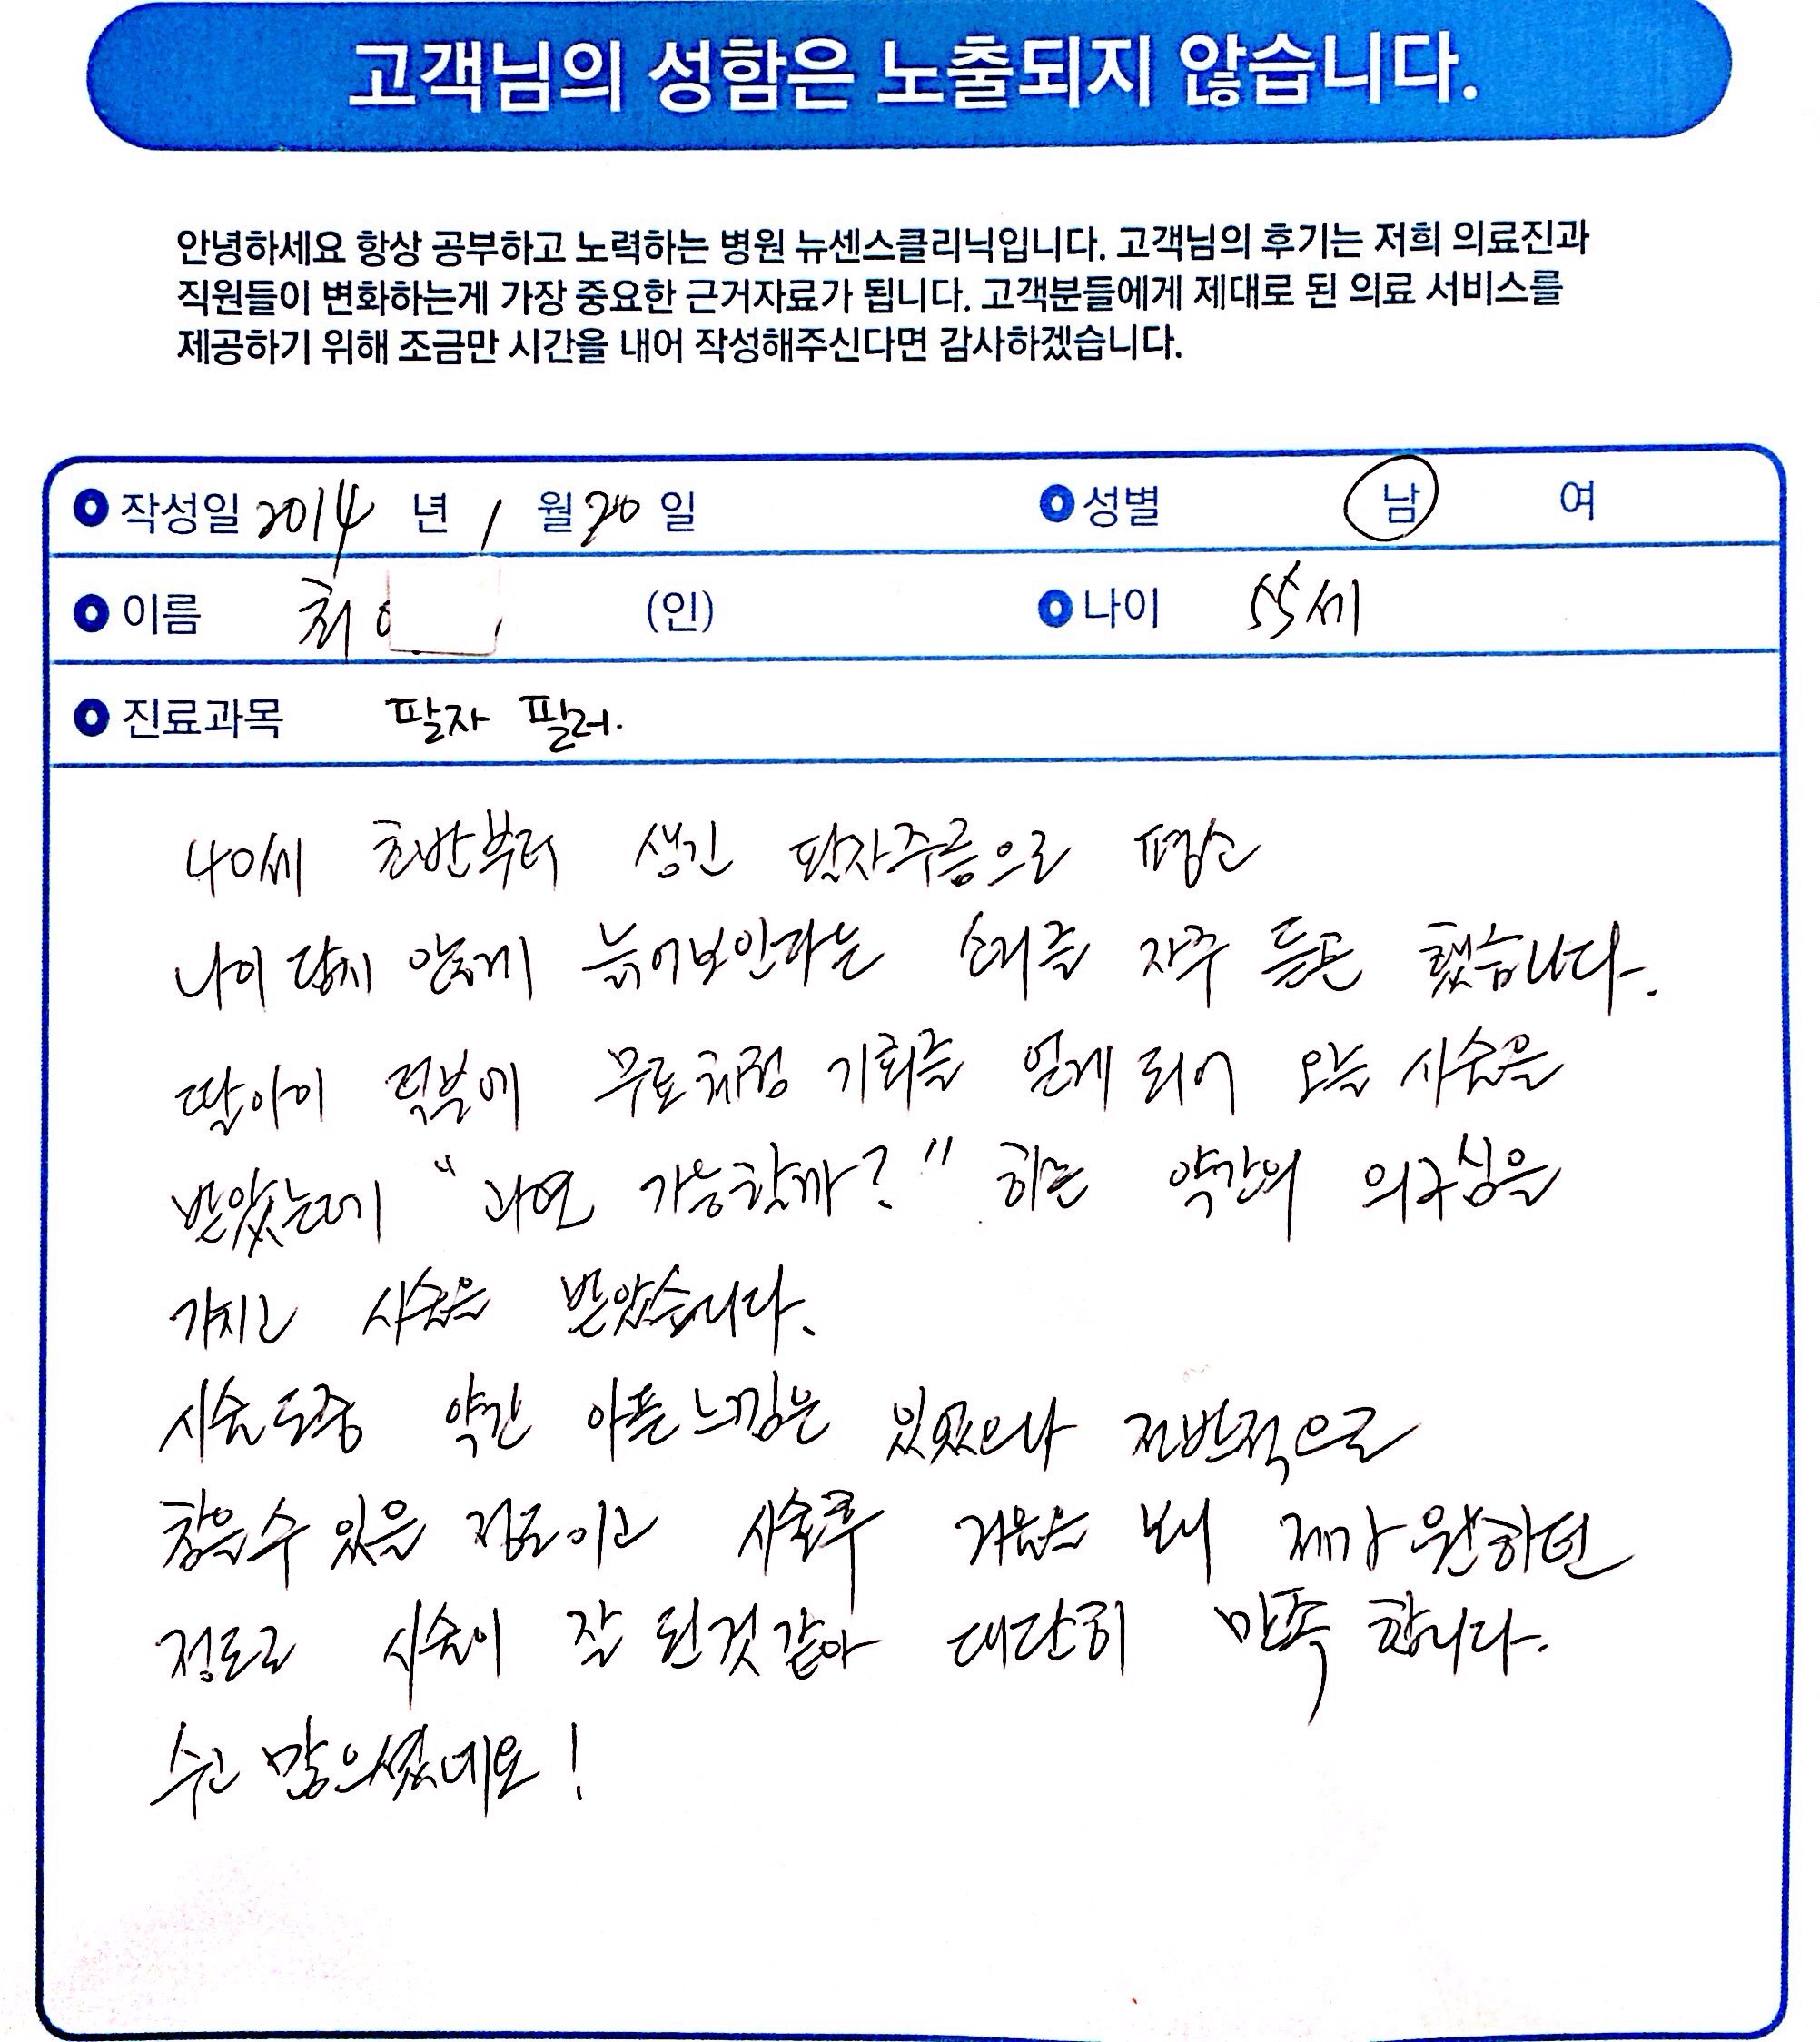 고객님의 성함은 노출되지 않습니다.
안녕하세요 항상 공부하고 노력하는 병원 뉴센스클리닉입니다. 고객님의 후기는 저희 의료진과
직원들이 변화하는게 가장 중요한 근거자료가 됩니다. 고객분들에게 제대로 된 의료 서비스를
제공하기 위해 조금만 시간을 내어 작성해주신다면 감사하겠습니다.
작성일 2014 년 1 월 20 일 성별 남 여
이름 최 (인) 나이 55세
진료과목 팔자 필러.
40세 초반부터 생긴 팔자주름으로 평소
나이 답지 않게 늙어보인다는 소리를 자주 듣곤 했습니다.
딸아이 덕분에 무료체험 기회를 얻게 되어 오늘 시술을
받았는데 "과연 가능할까?" 하는 약간의 의구심을
가지고 시술을 받았습니다.
시술도중 약간 아픈느낌은 있었으나 전반적으로
참을수 있을 정도이고 시술후 거울을 보니 제가 원하던
정도로 시술이 잘 된것같아 대단히 만족 합니다.
수고 많으셨네요!